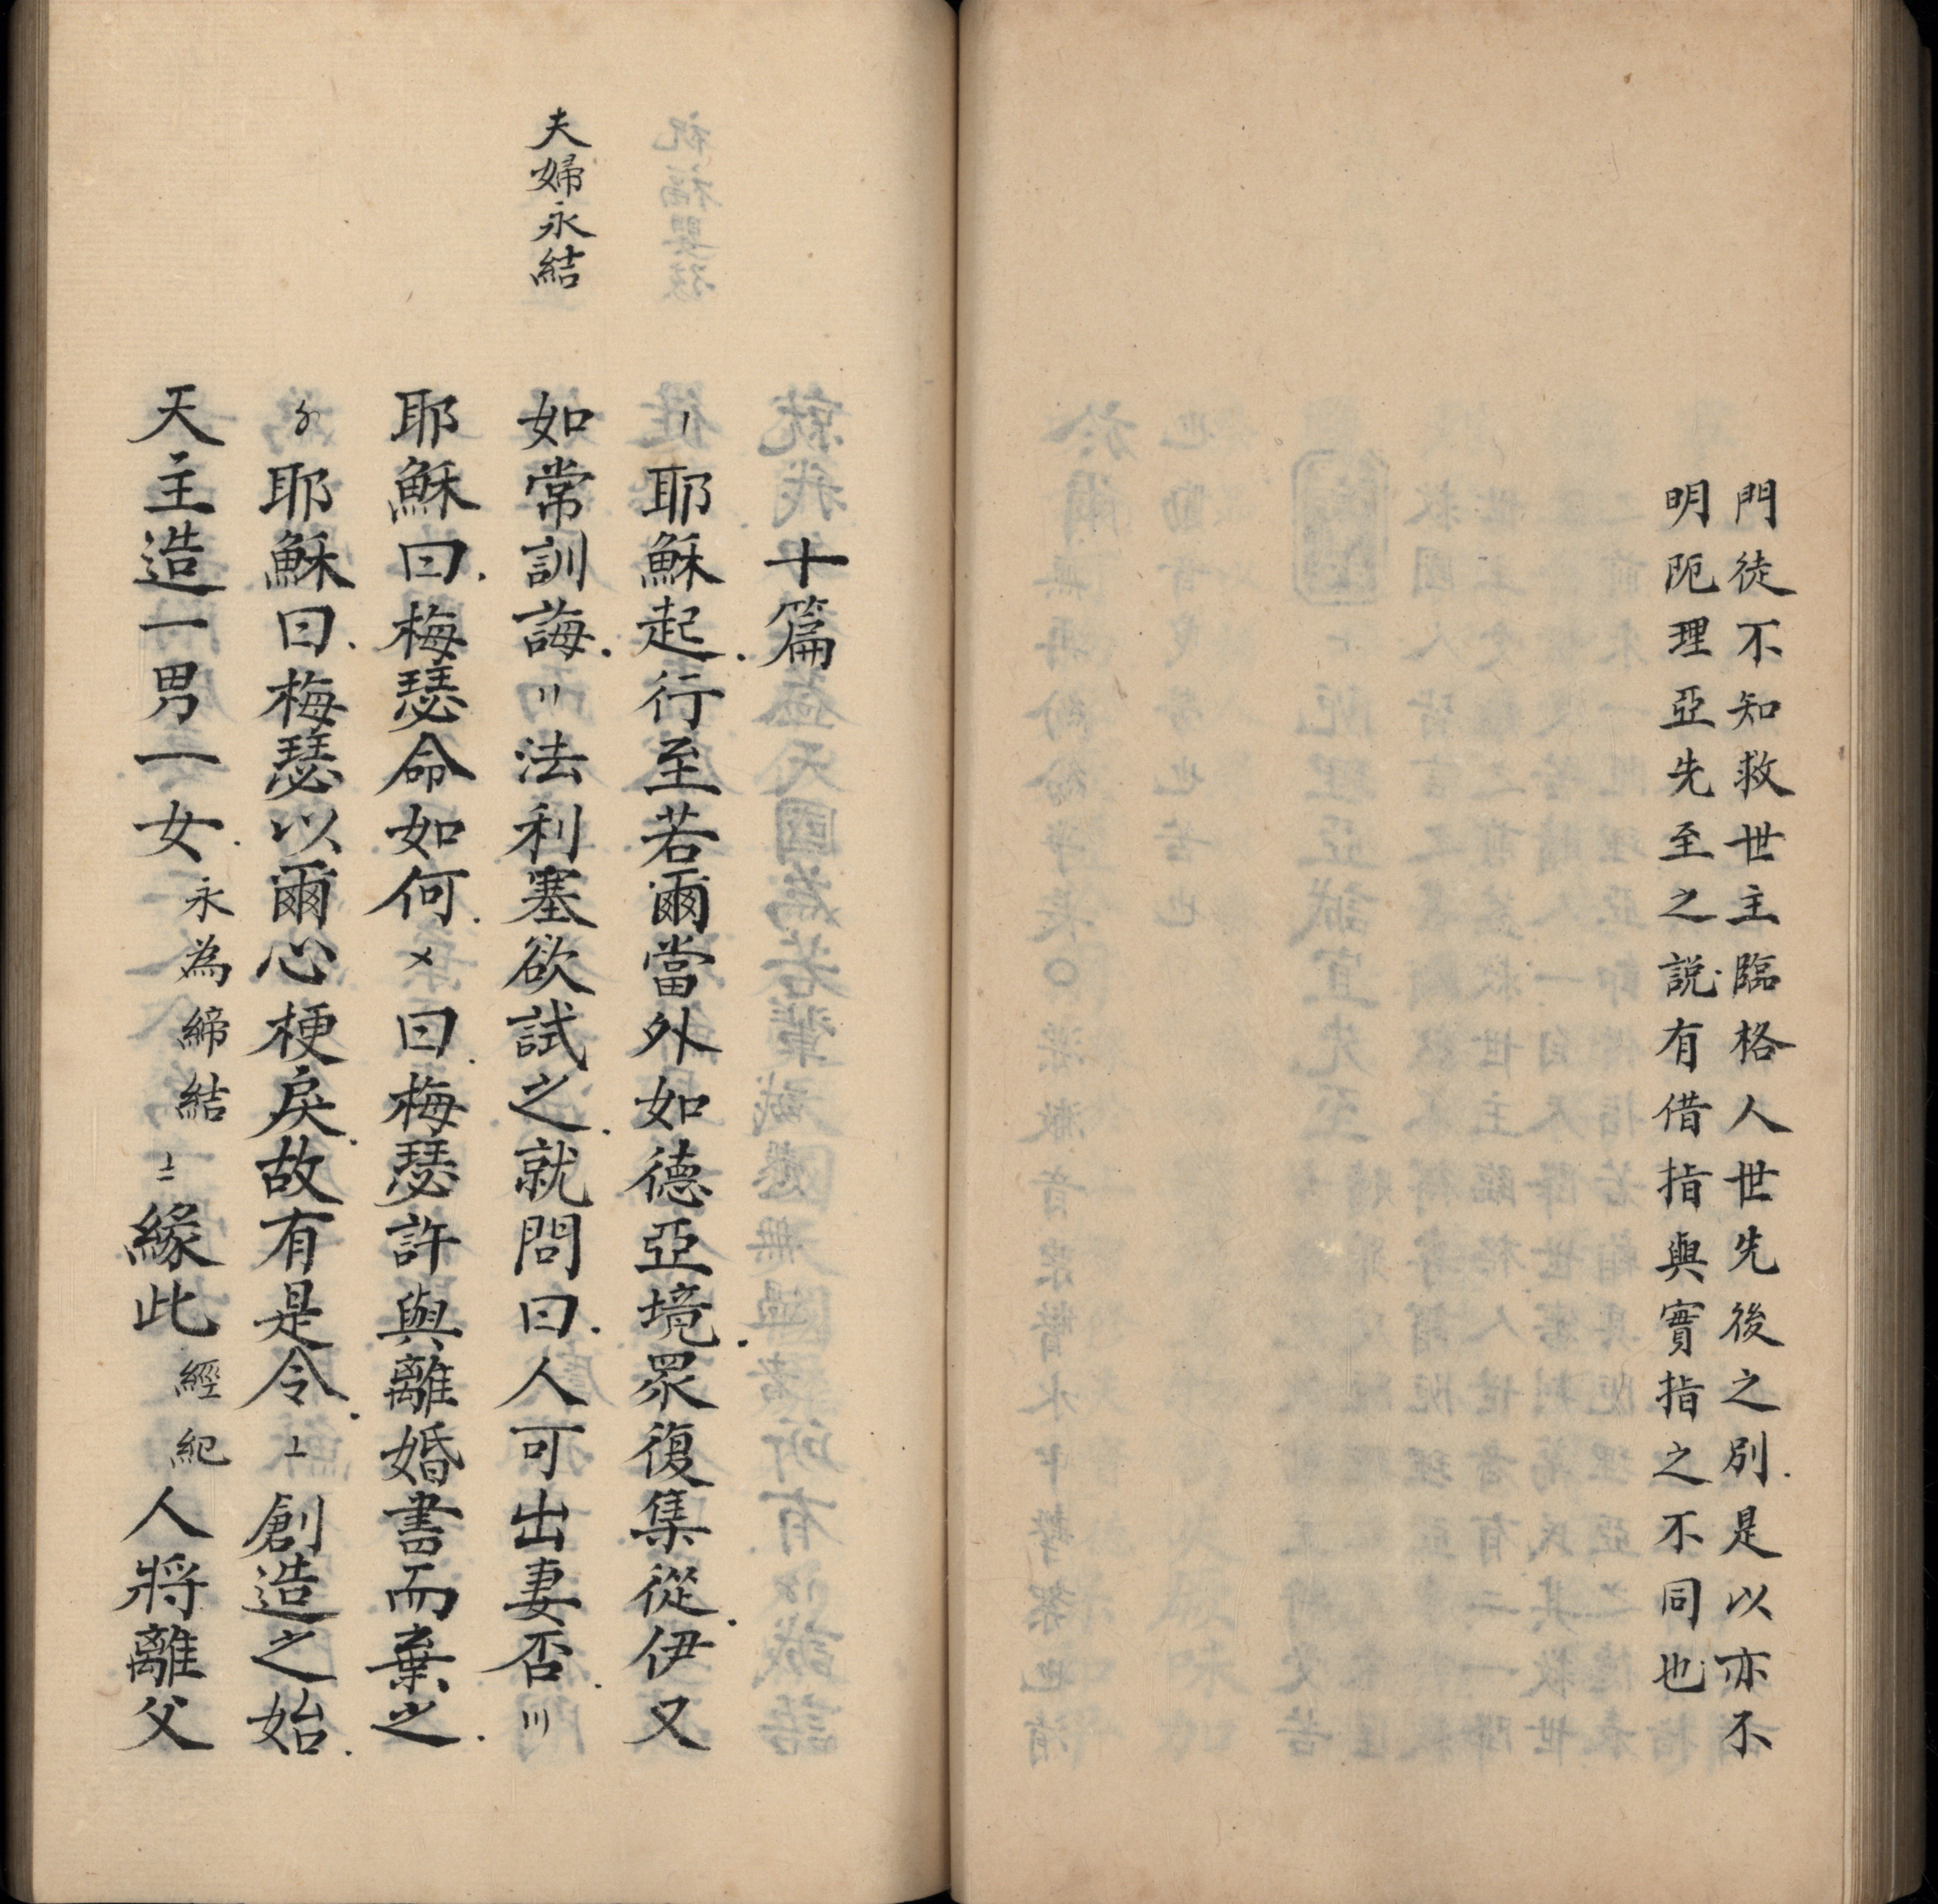 門徒不知救世主臨格人世先後之別.是以亦不
明阨理亞先至之説.有借指與實指之不同也
十篇
〡耶穌起.行至若爾當外如德亞境.眾復集從.伊又
夫婦永結
如常訓誨.〢法利塞欲試之.就問曰.人可出妻否.〣
耶穌曰.梅瑟命如何.〤曰.梅瑟許與離婚書而棄之.
〥耶穌曰.梅瑟以爾心梗戾.故有是令.〦創造之始.
天主造一男一女.永為締結〧緣此經紀人將離父